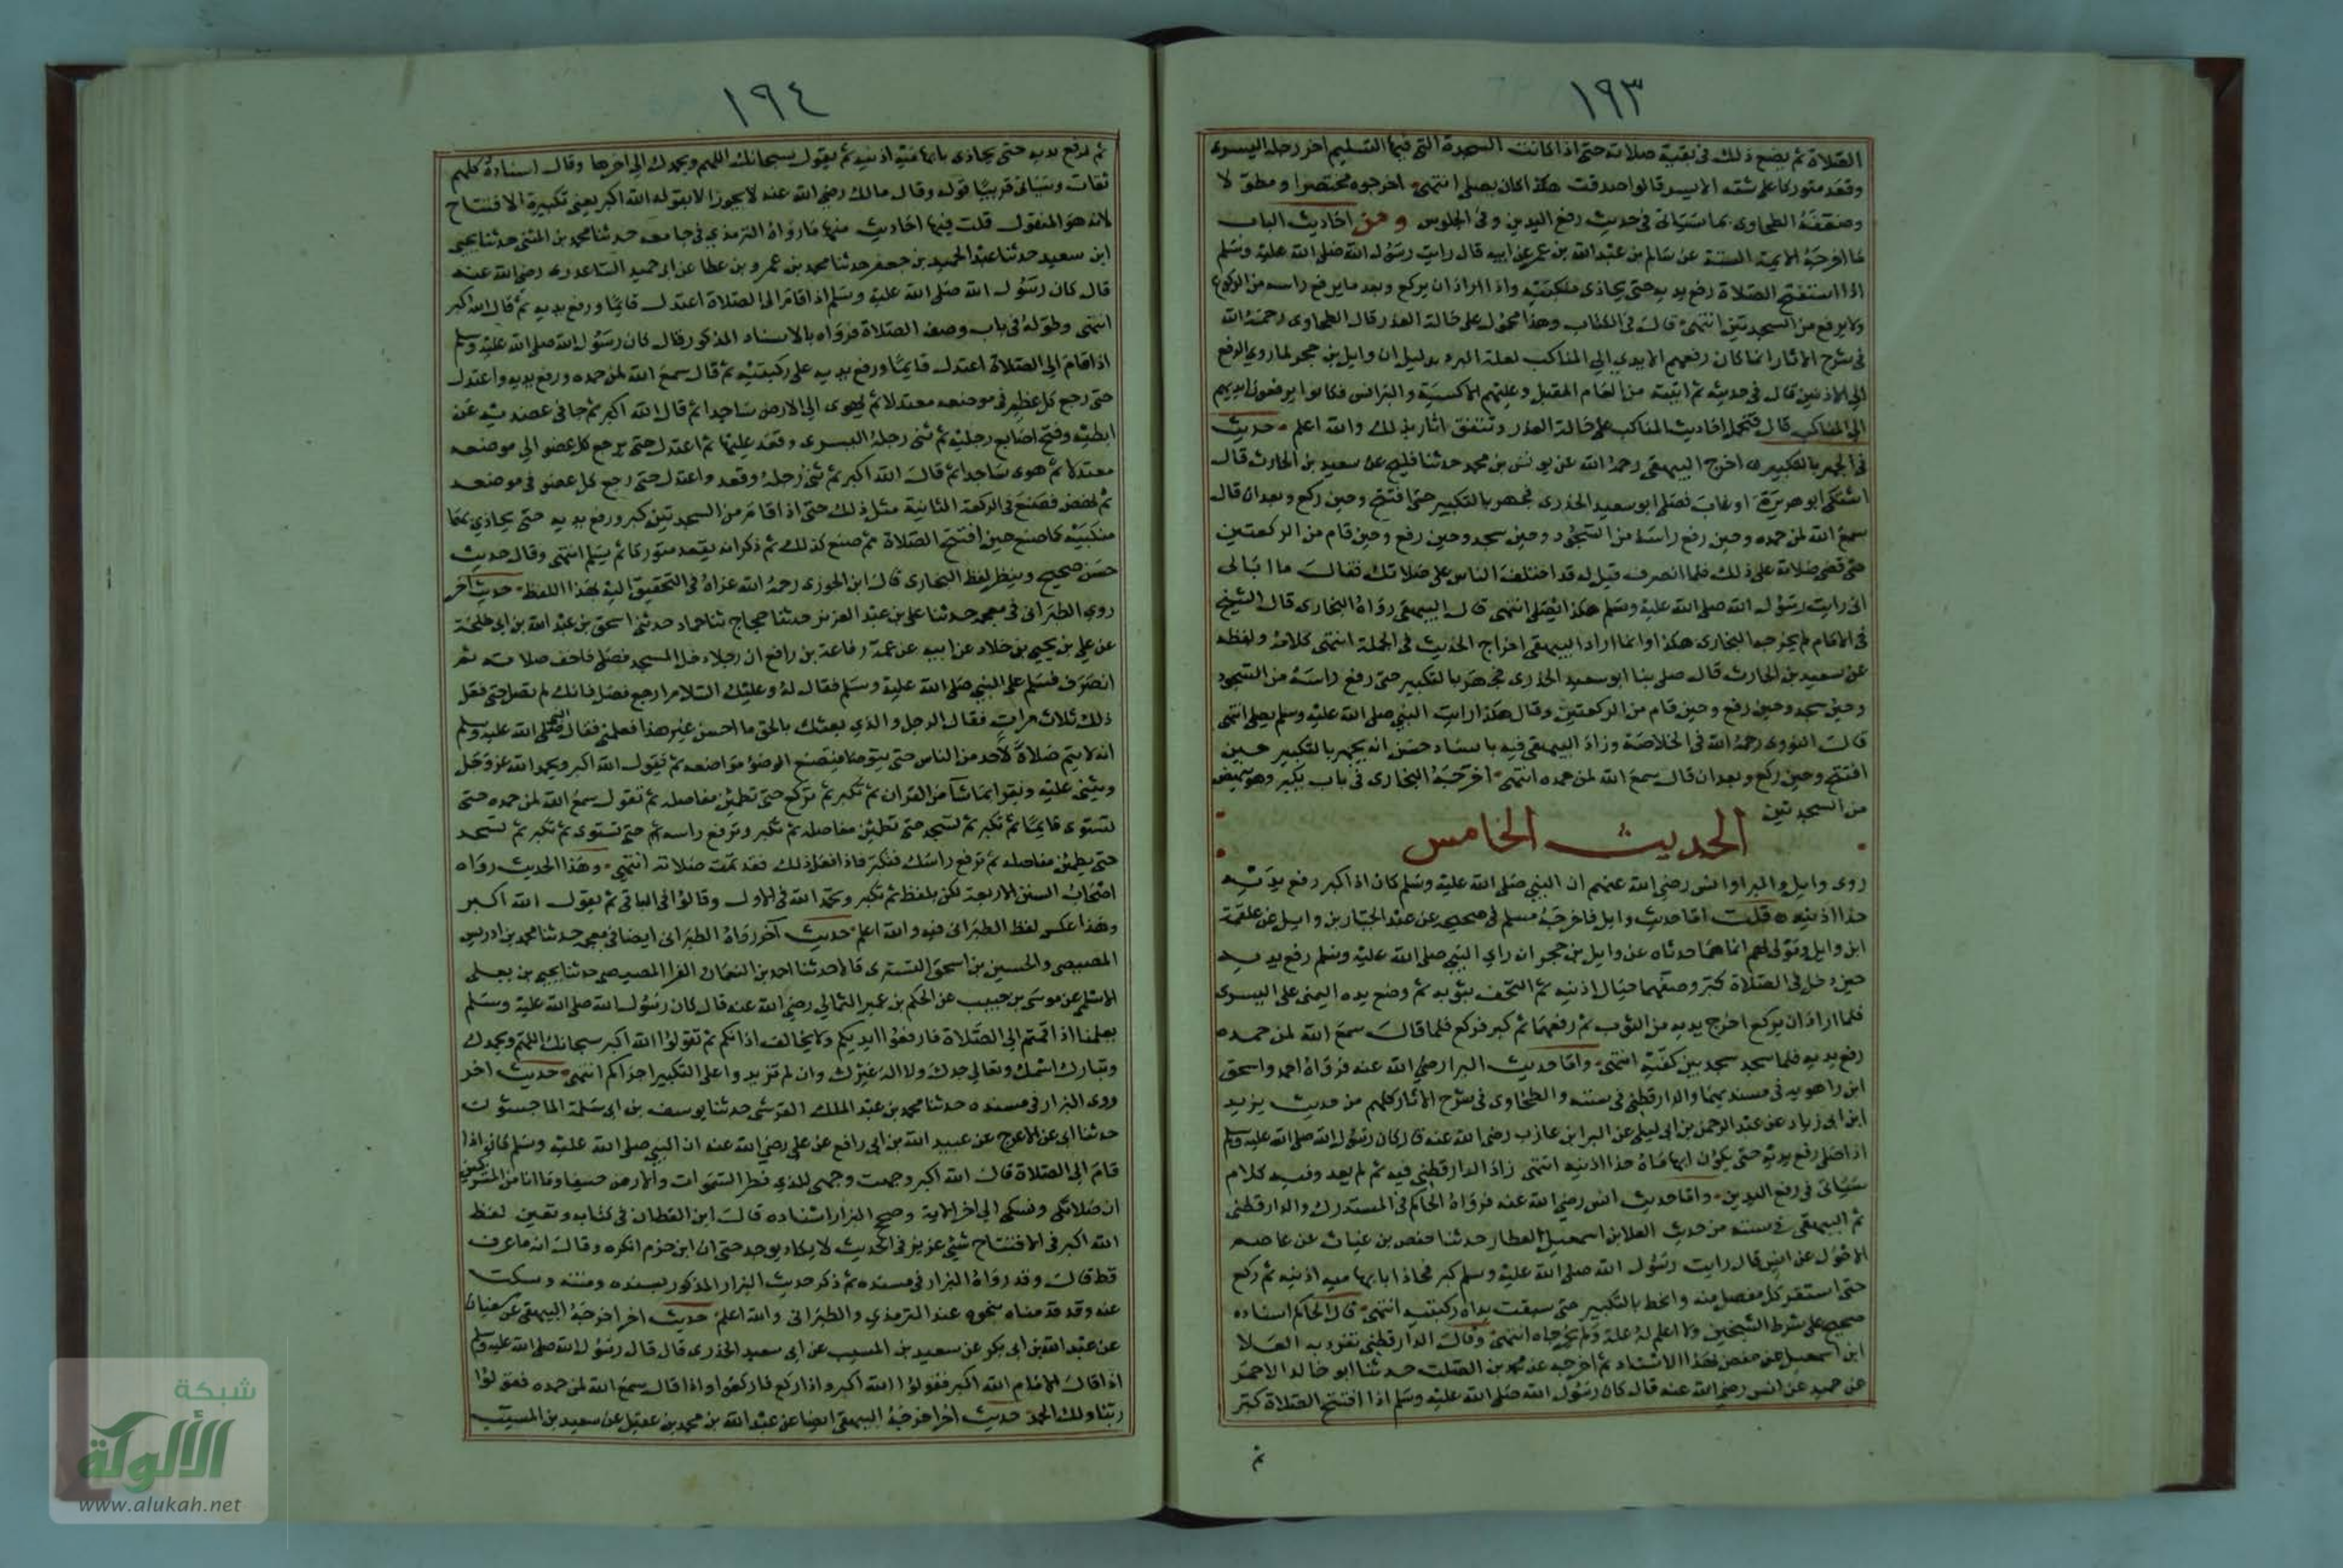 ١٩٣
الصلاة ثم يصنع ذلك في بقية صلاته حتى اذا كانت السجدة التي فيها التسليم اخر رجله اليسرى
وقعد متوركا على شقه الايسر قالوا صدقت هكذا كان يصلى انتهى اخرجوه مختصرا ومطولا
وضعفه الطحاوى بما سياتى في حديث رفع اليدين وفي الجلوس ومن احاديث الباب
ما اخرجه الايمة الستة عن سالم بن عبد الله بن عمر عن ابيه قال رايت رسول الله صلى الله عليه وسلم
اذا استفتح الصلاة رفع يديه حتى يحاذى منكبيه واذا اراد ان يركع وبعد ما يرفع راسه من الركوع
ولا يرفع من السجدتين انتهى قال في الكتاب وهذا محمول على حالة العذر قال الطحاوى رحمه الله
في شرح الاثار انما كان رفعهم الايدي الى المناكب لعلة البرد بدليل ان وايل بن حجر لما روي الرفع
الى الاذنين قال في حديثه ثم اتيته من العام المقبل وعليهم الاكسية والبرانس فكانوا يرفعون ايديهم
الى المناكب قال فتحمل احاديث المناكب على حالة العذر وتتفق اثار بذلك والله اعلم حديث
في الجهر بالتكبير اخرج البيهقى رحمه الله عن يونس بن محمد حدثنا فليح عن سعيد بن الحارث قال
اشتكى ابو هريرة او غاب فصلى ابو سعيد الخدرى فجهر بالتكبير حين افتتح وحين ركع وبعد ان قال
سمع الله لمن حمده وحين رفع راسه من السجود وحين سجد وحين رفع وحين قام من الركعتين
حتى قضى صلاته على ذلك فلما انصرف قيل له قد اختلف الناس على صلاتك فقال ما ابالى
انى رايت رسول الله صلى الله عليه وسلم هكذا يصلى انتهى قال البيهقى رواه البخارى قال الشيخ
في الامام لم يخرجه البخارى هكذا وانما اراد البيهقى اخراج الحديث في الجملة انتهى كلامه ولفظه
عن سعيد بن الحارث قال صلى بنا ابو سعيد الخدرى فجهر بالتكبير حتى رفع راسه من السجود
وحين سجد وحين رفع وحين قام من الركعتين وقال هكذا رايت النبي صلى الله عليه وسلم يصلى انتهى
قال النووى رحمه الله في الخلاصة وزاد البيهقى فيه باسناد حسن انه يجهر بالتكبير حين
افتتح وحين ركع وبعد ان قال سمع الله لمن حمده انتهى اخرجه البخارى في باب يكبر وهو ينهض
من السجدتين
الحديث الخامس
روى وايل والبرا وانس رضى الله عنهم ان النبي صلى الله عليه وسلم كان اذا كبر رفع يديه
حذا اذنيه قلت اما حديث وايل فاخرجه مسلم في صحيحه عن عبد الجبار بن وايل عن علقمة
ابن وايل ومولى لهم انهما حدثاه عن وايل بن حجر انه راى النبي صلى الله عليه وسلم رفع يديه
حين دخل في الصلاة كبر وصفهما حيال اذنيه ثم التحف بثوبه ثم وضع يده اليمنى على اليسرى
فلما اراد ان يركع اخرج يديه من الثوب ثم رفعهما ثم كبر فركع فلما قال سمع الله لمن حمده
رفع يديه فلما سجد سجد بين كفيه انتهى واما حديث البرا رضي الله عنه فرواه احمد واسحق
ابن راهويه في مسنديهما والدارقطنى في سننه والطحاوى في شرح الاثار كلهم من حديث يزيد
ابن ابي زياد عن عبد الرحمن بن ابي ليلى عن البرا بن عازب رضي الله عنه قال كان رسول الله صلى الله عليه وسلم
اذا صلى رفع يديه حتى يكون ابهاماه حذا اذنيه انتهى زاد الدارقطنى فيه ثم لم يعد وفيه كلام
سياتى في رفع اليدين واما حديث انس رضي الله عنه فرواه الحاكم في المستدرك والدارقطنى
ثم البيهقى في سننه من حديث العلا بن اسمعيل العطار حدثنا حفص بن غياث عن عاصم
الاحول عن انس قال رايت رسول الله صلى الله عليه وسلم كبر فحاذا بابهاميه اذنيه ثم ركع
حتى استقر كل مفصل منه وانحط بالتكبير حتى سبقت يداه ركبتيه انتهى قال الحاكم اسناده
صحيح على شرط الشيخين ولا اعلم له علة ولم يخرجاه انتهى وقال الدارقطنى تفرد به العلا
ابن اسمعيل عن حفص بهذا الاسناد ثم اخرجه عن محمد بن الصلت حدثنا ابو خالد الاحمر
عن حميد عن انس رضى الله عنه قال كان رسول الله صلى الله عليه وسلم اذا افتتح الصلاة كبر
ثم
١٩٤
ثم لرفع يديه حتى يحاذى بابهاميه اذنيه ثم يقول سبحانك اللهم وبحمدك الى اخرها وقال اسناده كلهم
ثقات وسياتى قريبا قوله وقال مالك رضي الله عنه لا يجوز الا بقوله الله اكبر يعنى تكبيرة الافتتاح
لانه هو المنقول قلت فيها احاديث منها ما رواه الترمذي في جامعه حدثنا محمد بن المثنى حدثنا يحيى
ابن سعيد حدثنا عبد الحميد بن جعفر حدثنا محمد بن عمرو بن عطا عن ابى حميد الساعدى رضى الله عنه
قال كان رسول الله صلى الله عليه وسلم اذا قام الى الصلاة اعتدل قايما ورفع يديه ثم قال الله اكبر
انتهى وطوله في باب وصف الصلاة فرواه بالاسناد المذكور قال كان رسول الله صلى الله عليه وسلم
اذا قام الى الصلاة اعتدل قايما ورفع يديه على ركبتيه ثم قال سمع الله لمن حمده ورفع يديه واعتدل
حتى رجع كل عظم في موضعه معتدلا ثم يهوى الى الارض ساجدا ثم قال الله اكبر ثم جافى عضديه عن
ابطيه وفتح اصابع رجليه ثم ثنى رجله اليسرى وقعد عليها ثم اعتدل حتى يرجع كل عضو الى موضعه
معتدلا ثم هوى ساجدا ثم قال الله اكبر ثم ثنى رجله وقعد واعتدل حتى رجع كل عضو في موضعه
ثم نهض فصنع في الركعة الثانية مثل ذلك حتى اذا قام من السجدتين كبر ورفع يديه حتى يحاذي بهما
منكبيه كما صنع حين افتتح الصلاة ثم صنع كذلك ثم ذكر انه يقعد متوركا ثم يسلم انتهى وقال حديث
حسن صحيح وينظر لفظ البخارى قال ابن الجوزى رحمه الله عزاه في التحقيق اليه بهذا اللفظ حديث آخر
روى الطبرانى في معجمه حدثنا على بن عبد العزيز حدثنا حجاج ثنا حماد حدثنى اسحق بن عبد الله بن ابي طلحة
عن علي بن يحيى بن خلاد عن ابيه عن عمه رفاعة بن رافع ان رجلا دخل المسجد فصلى فاخف صلاته ثم
انصرف فسلم على النبي صلى الله عليه وسلم فقال له وعليك السلام ارجع فصل فانك لم تصل حتى فعل
ذلك ثلاث مرات فقال الرجل والذي بعثك بالحق ما احسن غير هذا فعلمنى فقال النبي صلى الله عليه وسلم
انه لا يتم صلاة لأحد من الناس حتى يتوضا فيضع الوضؤ مواضعه ثم يقول الله اكبر ويحمد الله عز وجل
ويثنى عليه ويقرا بما شا من القران ثم تكبر ثم تركع حتى تطمئن مفاصله ثم تقول سمع الله لمن حمده حتى
تستوى قايما ثم تكبر ثم تسجد حتى تطمئن مفاصله ثم تكبر وترفع راسه ثم حتى تستوى ثم تكبر ثم تسجد
حتى يطمئن مفاصله ثم ترفع راسك فتكبر فاذا فعل ذلك فقد تمت صلاته انتهى وهذا الحديث رواه
اصحاب السنن الاربعة لكن بلفظ ثم تكبر وتحمد الله في الاول وقالوا في الباقى ثم يقول الله اكبر
وهذا عكس لفظ الطبرانى فيه والله اعلم حديث آخر رواه الطبرانى ايضا في معجمه حدثنا محمد بن ادريس
المصيصى والحسين بن اسحق التسترى قالا حدثنا احمد بن النعمان الفرا المصيصى حدثنا يحيى بن يعلى
الاسلمى عن موسى بن حبيب عن الحكم بن عمير الثمالي رضي الله عنه قال كان رسول الله صلى الله عليه وسلم
يعلمنا اذا قمتم الى الصلاة فارفعوا ايديكم ولا يخالف اذانكم ثم تقولوا الله اكبر سبحانك اللهم وبحمدك
وتبارك اسمك وتعالى جدك ولا اله غيرك وان لم تزيدوا على التكبير اجزاكم انتهى حديث اخر
روى البزار في مسنده حدثنا محمد بن عبد الملك القرشى حدثنا يوسف بن ابى سلمة الماجشون
حدثنا ابى عن الاعرج عن عبيد الله بن ابى رافع عن على رضي الله عنه ان النبي صلى الله عليه وسلم كان اذا
قام الى الصلاة قال الله اكبر وجهت وجهى للذي فطر السموات والارض حنيفا وما انا من المشركين
ان صلاتى ونسكى الى اخر الاية وصحح البزار اسناده قال ابن القطان في كتابه وتعيين لفظ
الله اكبر في الافتتاح شئ عزيز في الحديث لا يكاد يوجد حتى ان ابن حزم انكره وقال انه ما عرف
قط قال وقد رواه البزار في مسنده ثم ذكر حديث البزار المذكور بسنده ومتنه وسكت
عنه وقد قدمناه بنحوه عند الترمذي والطبرانى والله اعلم حديث اخر اخرجه البيهقى عن سفيان
عن عبد الله بن ابى بكر عن سعيد بن المسيب عن ابى سعيد الخدرى قال قال رسول الله صلى الله عليه وسلم
اذا قال الامام الله اكبر فقولوا الله اكبر واذا ركع فاركعوا واذا قال سمع الله لمن حمده فقولوا
ربنا ولك الحمد حديث اخر اخرجه البيهقى ايضا عن عبد الله بن محمد بن عقيل عن سعيد بن المسيب
شبكة
الألوكة
www.alukah.net